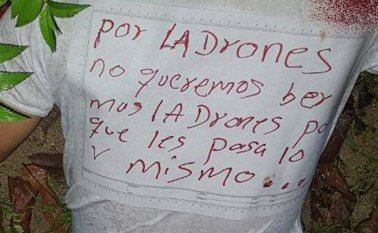 por LADrones
no queremos ber
mas LADrones po
que les pasa lo
y mismo...